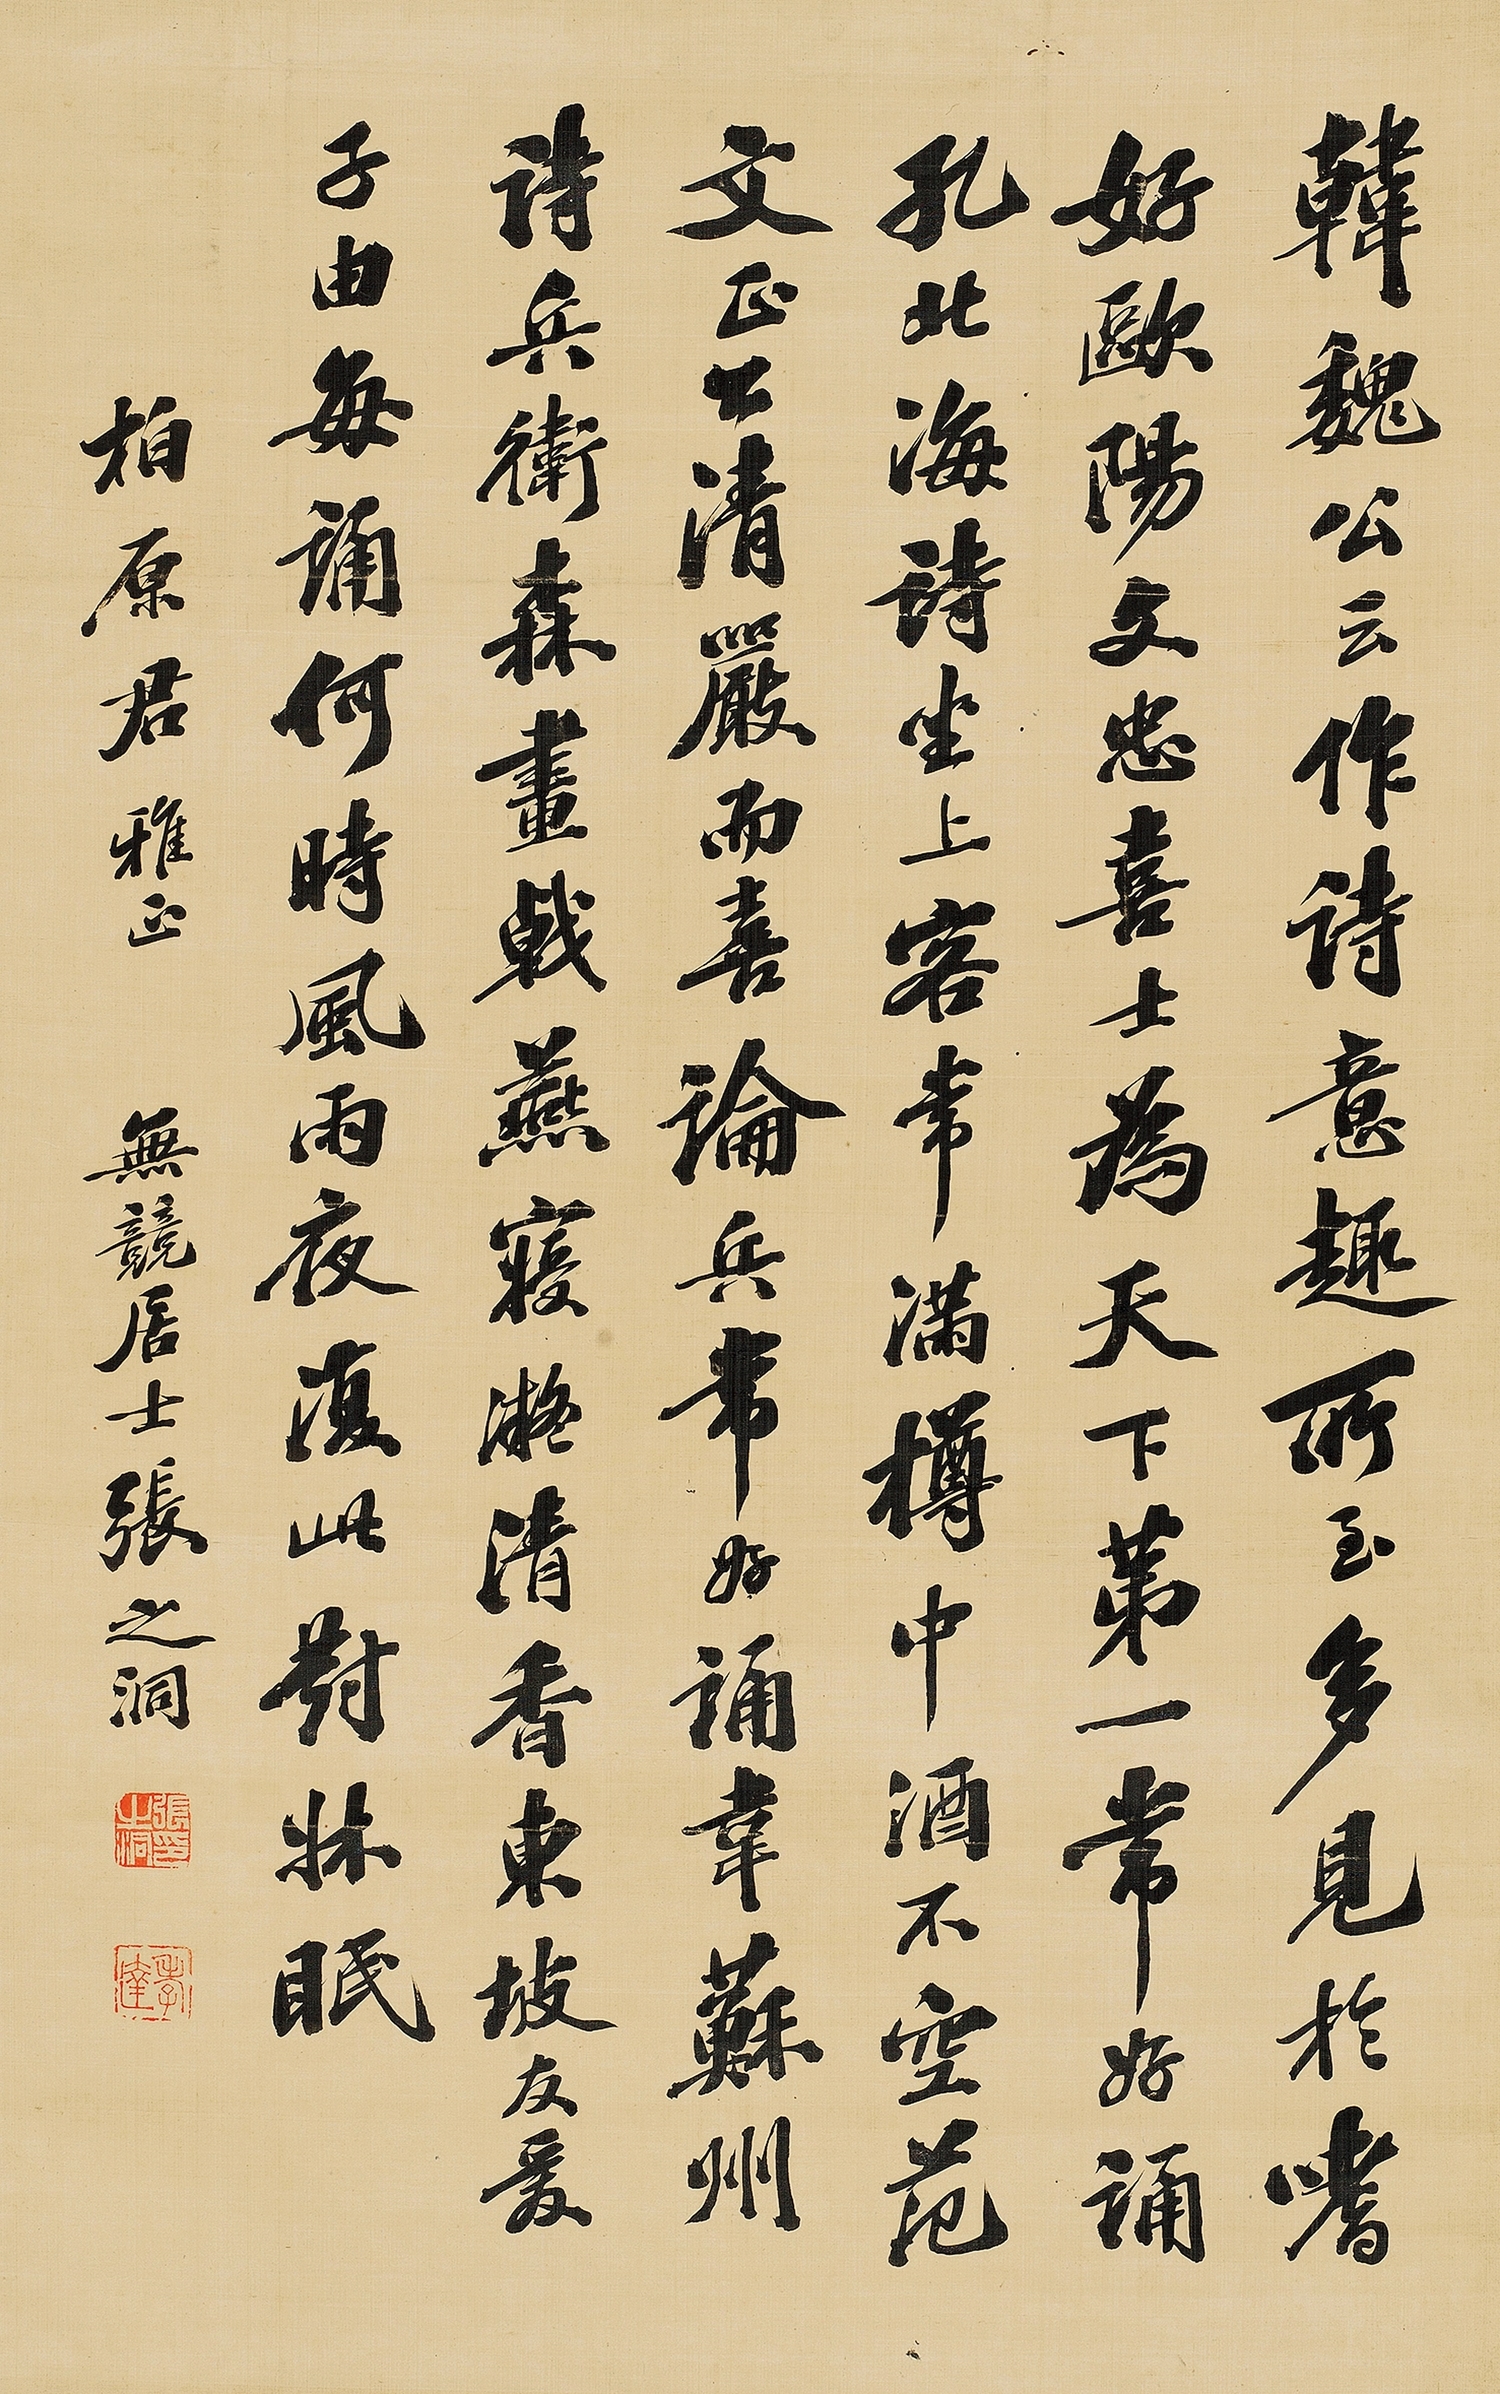 韓魏公云作詩意趣所至多見於嗜
好歐陽文忠喜士為天下第一常好誦
孔北海詩坐上客常滿樽中酒不空范
文正公清嚴而喜論兵常好誦韋蘇州
詩兵衛森畫戟燕寢凝清香東坡友愛
子由每誦何時風雨夜復此對牀眠
柏原君雅正
無競居士張之洞
張之洞印
孝達